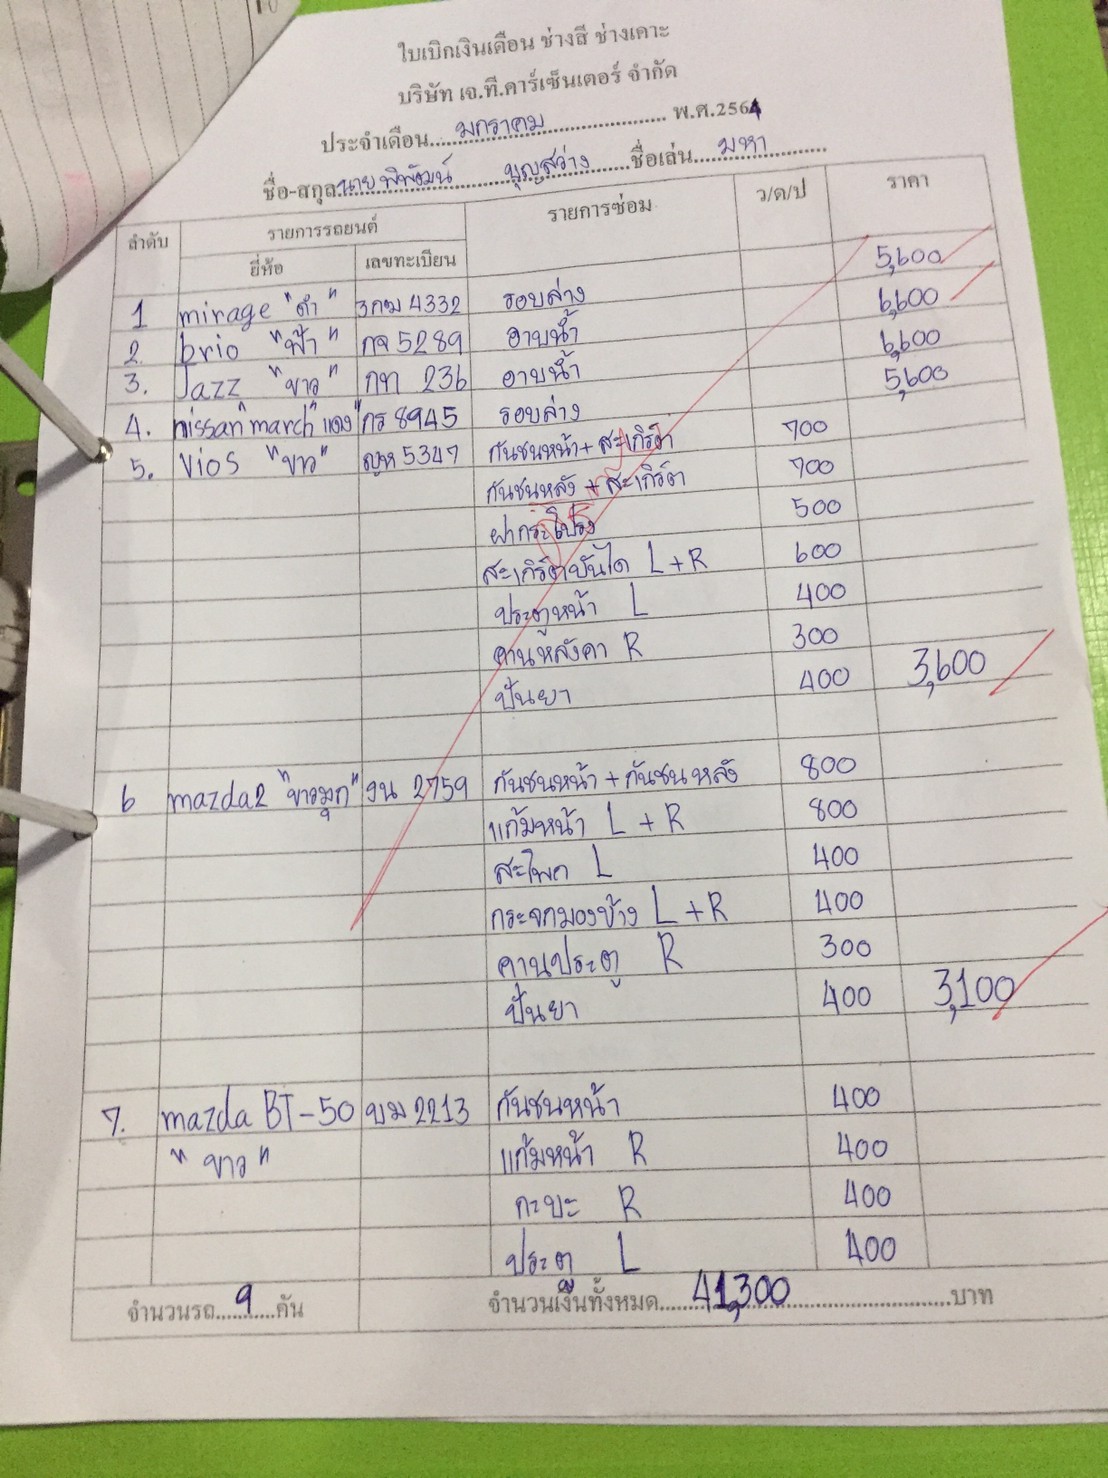 ใบเบิกเงินเดือน ช่างสี ช่างเคาะ
บริษัท เจ.ที.คาร์เซ็นเตอร์ จำกัด
ประจำเดือน....มกราคม.... พ.ศ.2564
ชื่อ-สกุล.นาย พิพัฒน์ บุญสว่าง....ชื่อเล่น....มหา....
ลำดับ รายการรถยนต์ รายการซ่อม ว/ด/ป ราคา
ยี่ห้อ เลขทะเบียน
1 mirage "ดำ" 3กฆ 4332 รอบล่าง 5,600
2. brio "ฟ้า" กจ 5289 อาบน้ำ 6,600
3. Jazz "ขาว" กท 236 อาบน้ำ 6,600
4. nissan "march" แดง" กร 8945 รอบล่าง 5,600
5. vios "ขาว" ญห 5347 กันชนหน้า + สะเกิร์ต 700
กันชนหลัง + สะเกิร์ต 700
ฝากระโปรง 500
สะเกิร์ตบันได L + R 600
ประตูหน้า L 400
คานหลังคา R 300
ปั้นยา 400 3,600
6 mazda2 "ขาวมุก" งน 2759 กันชนหน้า + กันชนหลัง 800
แก้มหน้า L + R 800
สะโพก L 400
กระจกมองข้าง L + R 400
คานประตู R 300
ปั้นยา 400 3,100
7. mazda BT-50 บม 2213 กันชนหน้า 400
"ขาว" แก้มหน้า R 400
กะบะ R 400
ประตู L 400
จำนวนรถ....9....คัน จำนวนเงินทั้งหมด....41,300....บาท